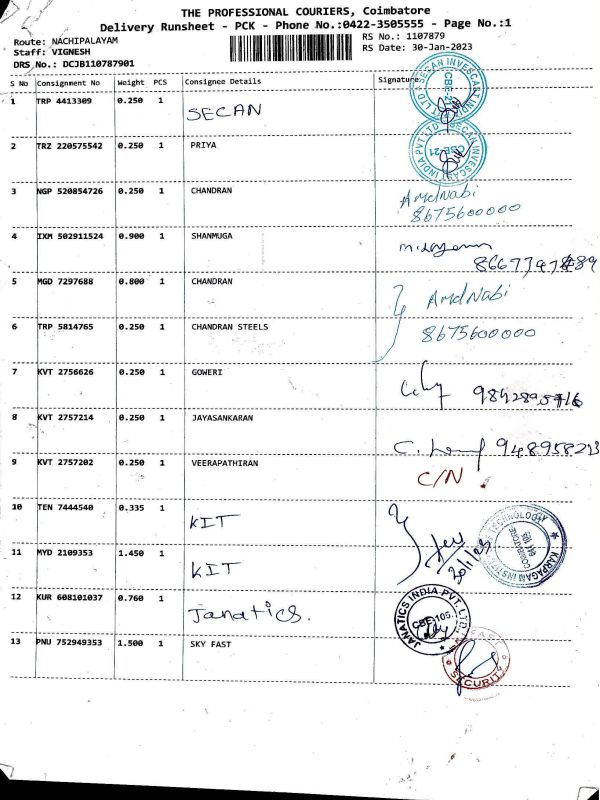 THE PROFESSIONAL COURIERS, Coimbatore
Delivery Runsheet - PCK - Phone No.:0422-3505555 - Page No.:1
Route: NACHIPALAYAM RS No.: 1107879
Staff: VIGNESH RS Date: 30-Jan-2023
DRS No.: DCJB110787901
S No Consignment No Weight PCS Consignee Details Signature
1 TRP 4413309 0.250 1 SECAN
2 TRZ 220575542 0.250 1 PRIYA
3 NGP 520854726 0.250 1 CHANDRAN AmdNabi
8675600000
4 IXM 502911524 0.900 1 SHANMUGA
5 MGD 7297688 0.800 1 CHANDRAN AmdNabi
6 TRP 5814765 0.250 1 CHANDRAN STEELS 8675600000
7 KVT 2756626 0.250 1 GOWERI
8 KVT 2757214 0.250 1 JAYASANKARAN
9 KVT 2757202 0.250 1 VEERAPATHIRAN C/N
10 TEN 7444540 0.335 1 KIT
11 MYD 2109353 1.450 1 KIT 30/1/23
12 KUR 608101037 0.760 1 Janatics. JANATICS INDIA PVT. LTD. CBE-105.
13 PNU 752949353 1.500 1 SKY FAST SECURITY